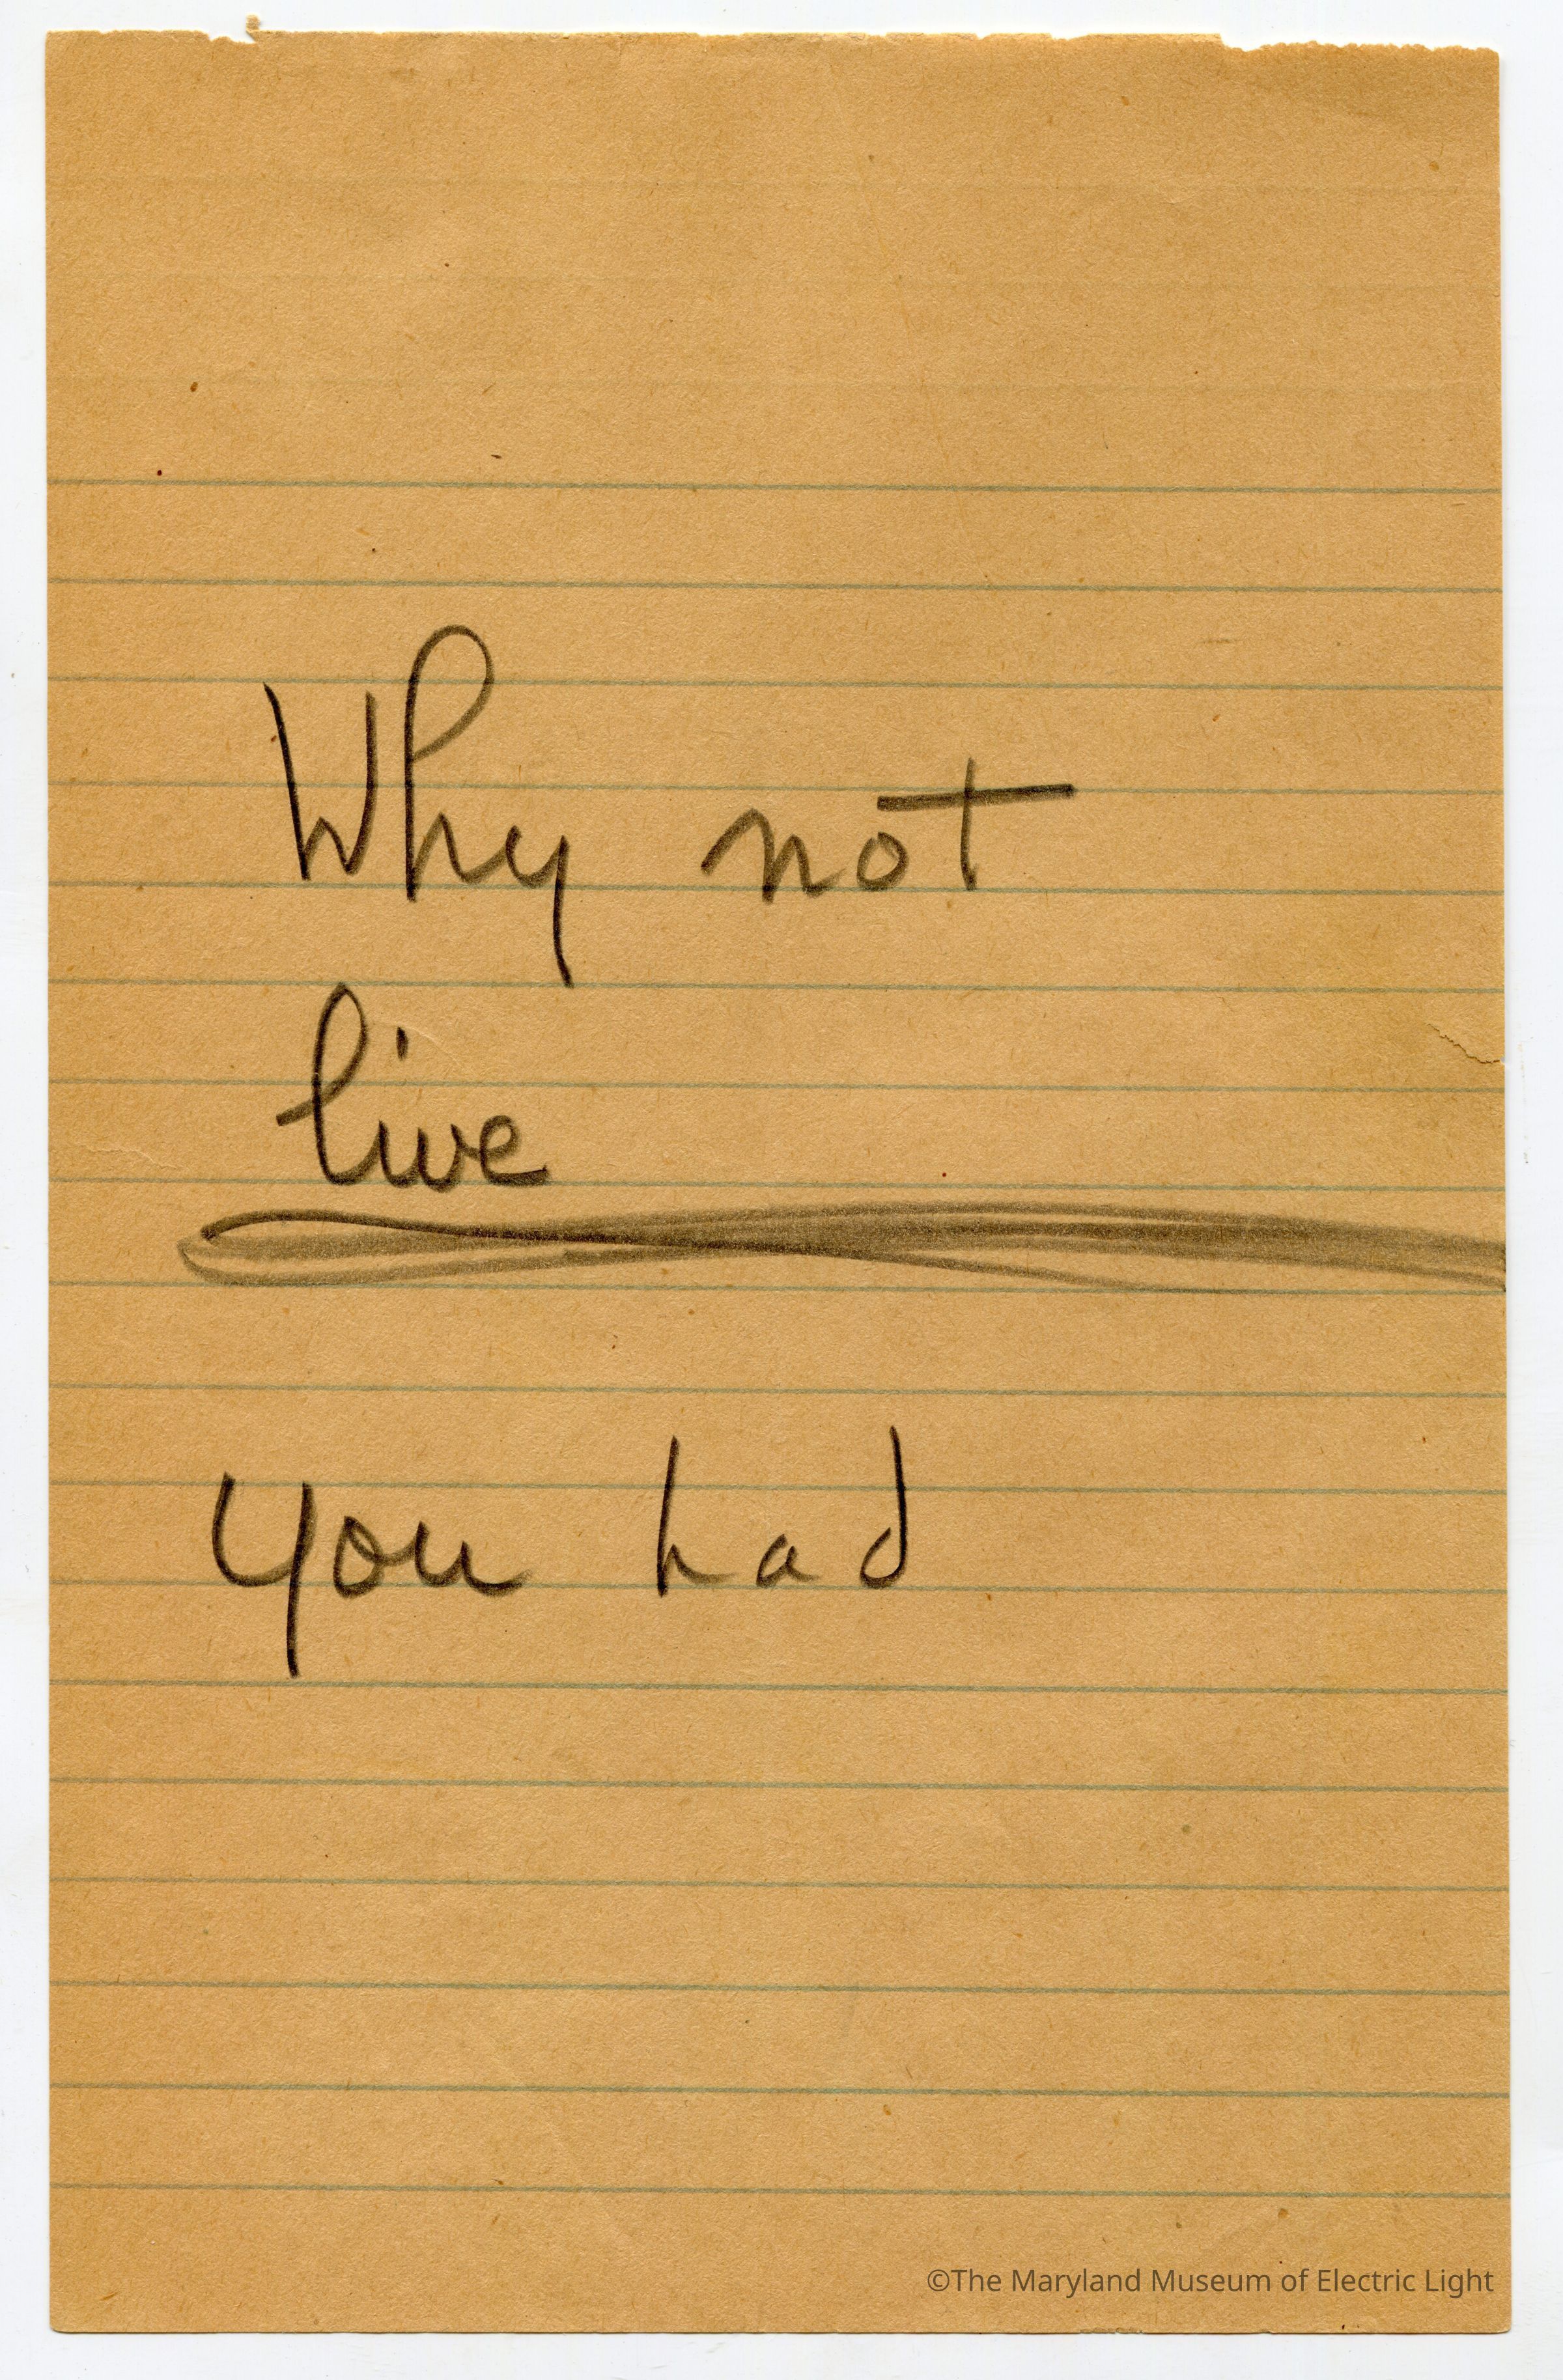 Why not
live
you had
©The Maryland Museum of Electric Light